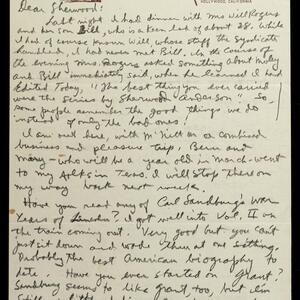 HOLLYWOOD, CALIFORNIA
Dear Sherwood:
Last night I had dinner with Mrs Will Rogers
and her son Bill, who is a keen lad of about 28. While
I had of course known Will, whose stuff the Syndicate
handled, I had never met Bill. In the course of
the evening Mrs. Rogers asked something about
and Bill immediately said, when he learned I had
edited Today, "The best thing you ever carried
was the series by Sherwood Anderson." So,
some people remember the good things we do
instead of only the bad ones!
I am out here, with McNitt on a combined
business and pleasure trip. Bern and
Mary - who will be a year old in March - went
to my folks in Texas. I will stop there on
my way back next week.
Have you read any of Carl Sandburg's War
Years of Lincoln? I got well into Vol. II on
the train coming out. Very good but you can't
just sit down and wade thru at one sitting.
Probably the best American biography to
date. Have you ever started on Grant?
Sandburg seems to like Grant, too, but
Still